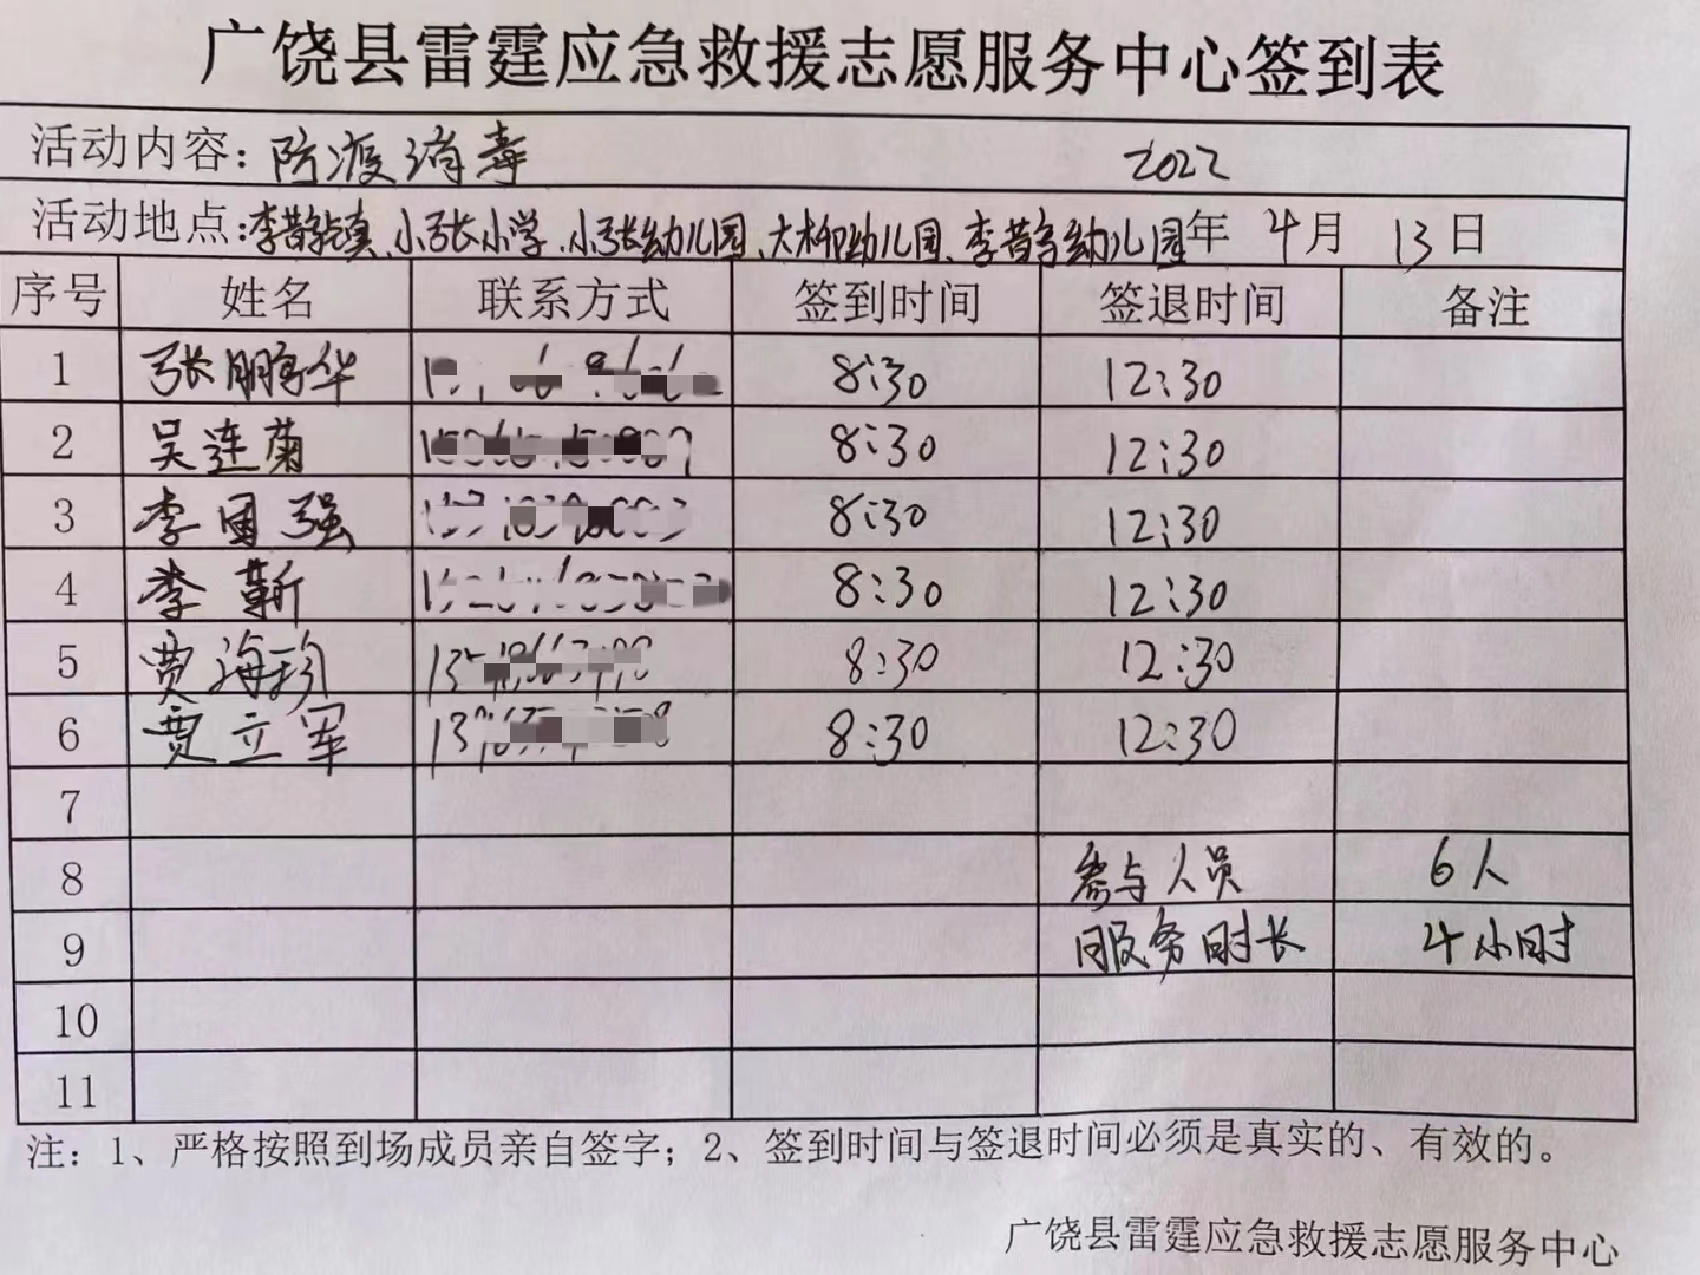 广饶县雷霆应急救援志愿服务中心签到表
活动内容：防疫消毒 2022
活动地点：李鹊镇、小张小学、小张幼儿园、大柳幼儿园、李鹊幼儿园年 4月 13日
序号 姓名 联系方式 签到时间 签退时间 备注
1 张鹏华 8:30 12:30
2 吴连菊 8:30 12:30
3 李国强 8:30 12:30
4 李靳 8:30 12:30
5 贾海珍 8:30 12:30
6 贾立军 8:30 12:30
7
8 参与人员 6人
9 服务时长 4小时
10
11
注：1、严格按照到场成员亲自签字；2、签到时间与签退时间必须是真实的、有效的。
广饶县雷霆应急救援志愿服务中心